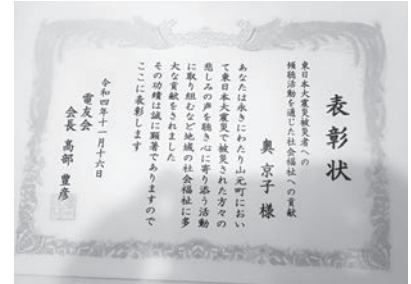 表彰状
東日本大震災被災者への
傾聴活動を通じた社会福祉への貢献
奥 京子 様
あなたは永きにわたり山元町におい
て東日本大震災で被災された方々の
悲しみの声を聴き心に寄り添う活動
に取り組むなど地域の社会福祉に多
大な貢献をされました
その功績は誠に顕著でありますので
ここに表彰します
令和四年十一月十六日
電友会
会長 高部 豊彦